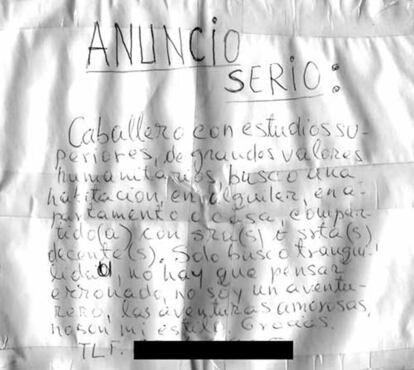 ANUNCIO
SERIO:
Caballero con estudios su-
periores, de grandes valores
humanitarios busco una
habitación, en alquiler, en a-
partamento o casa, compar-
tido(a) con sra(s) o srta(s)
decente(s). Solo busco tranqui-
lidad, no hay que pensar
erronado, no soy un aventu-
rero, las aventuras amorosas,
no son mi estilo. Gracias.
TLF.